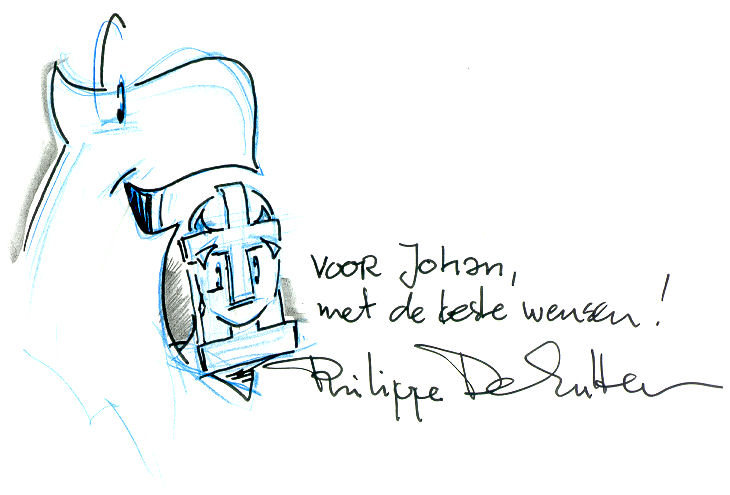 Voor Johan,
met de beste wensen!
Philippe De Sutter